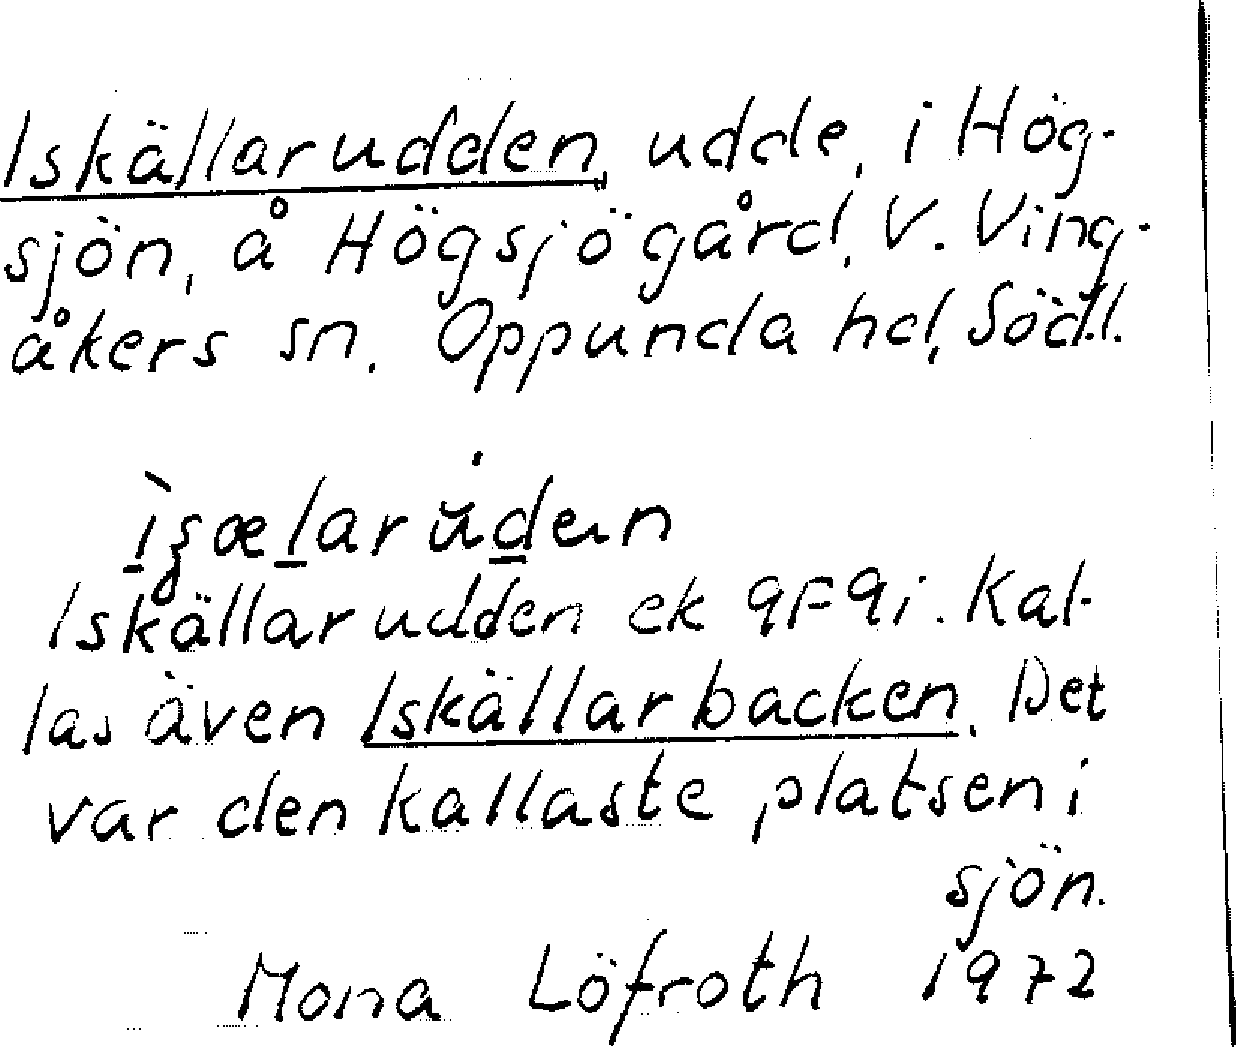 Iskällarudden, udde, i Hög-
sjön, å Högsjögård, V. Ving-
åkers sn. Oppunda hd, Södl.
Iskällarudden ek 9F9i. Kal-
las även Iskällarbacken. Det
var den kallaste platsen i
sjön.
Mona Löfroth 1972